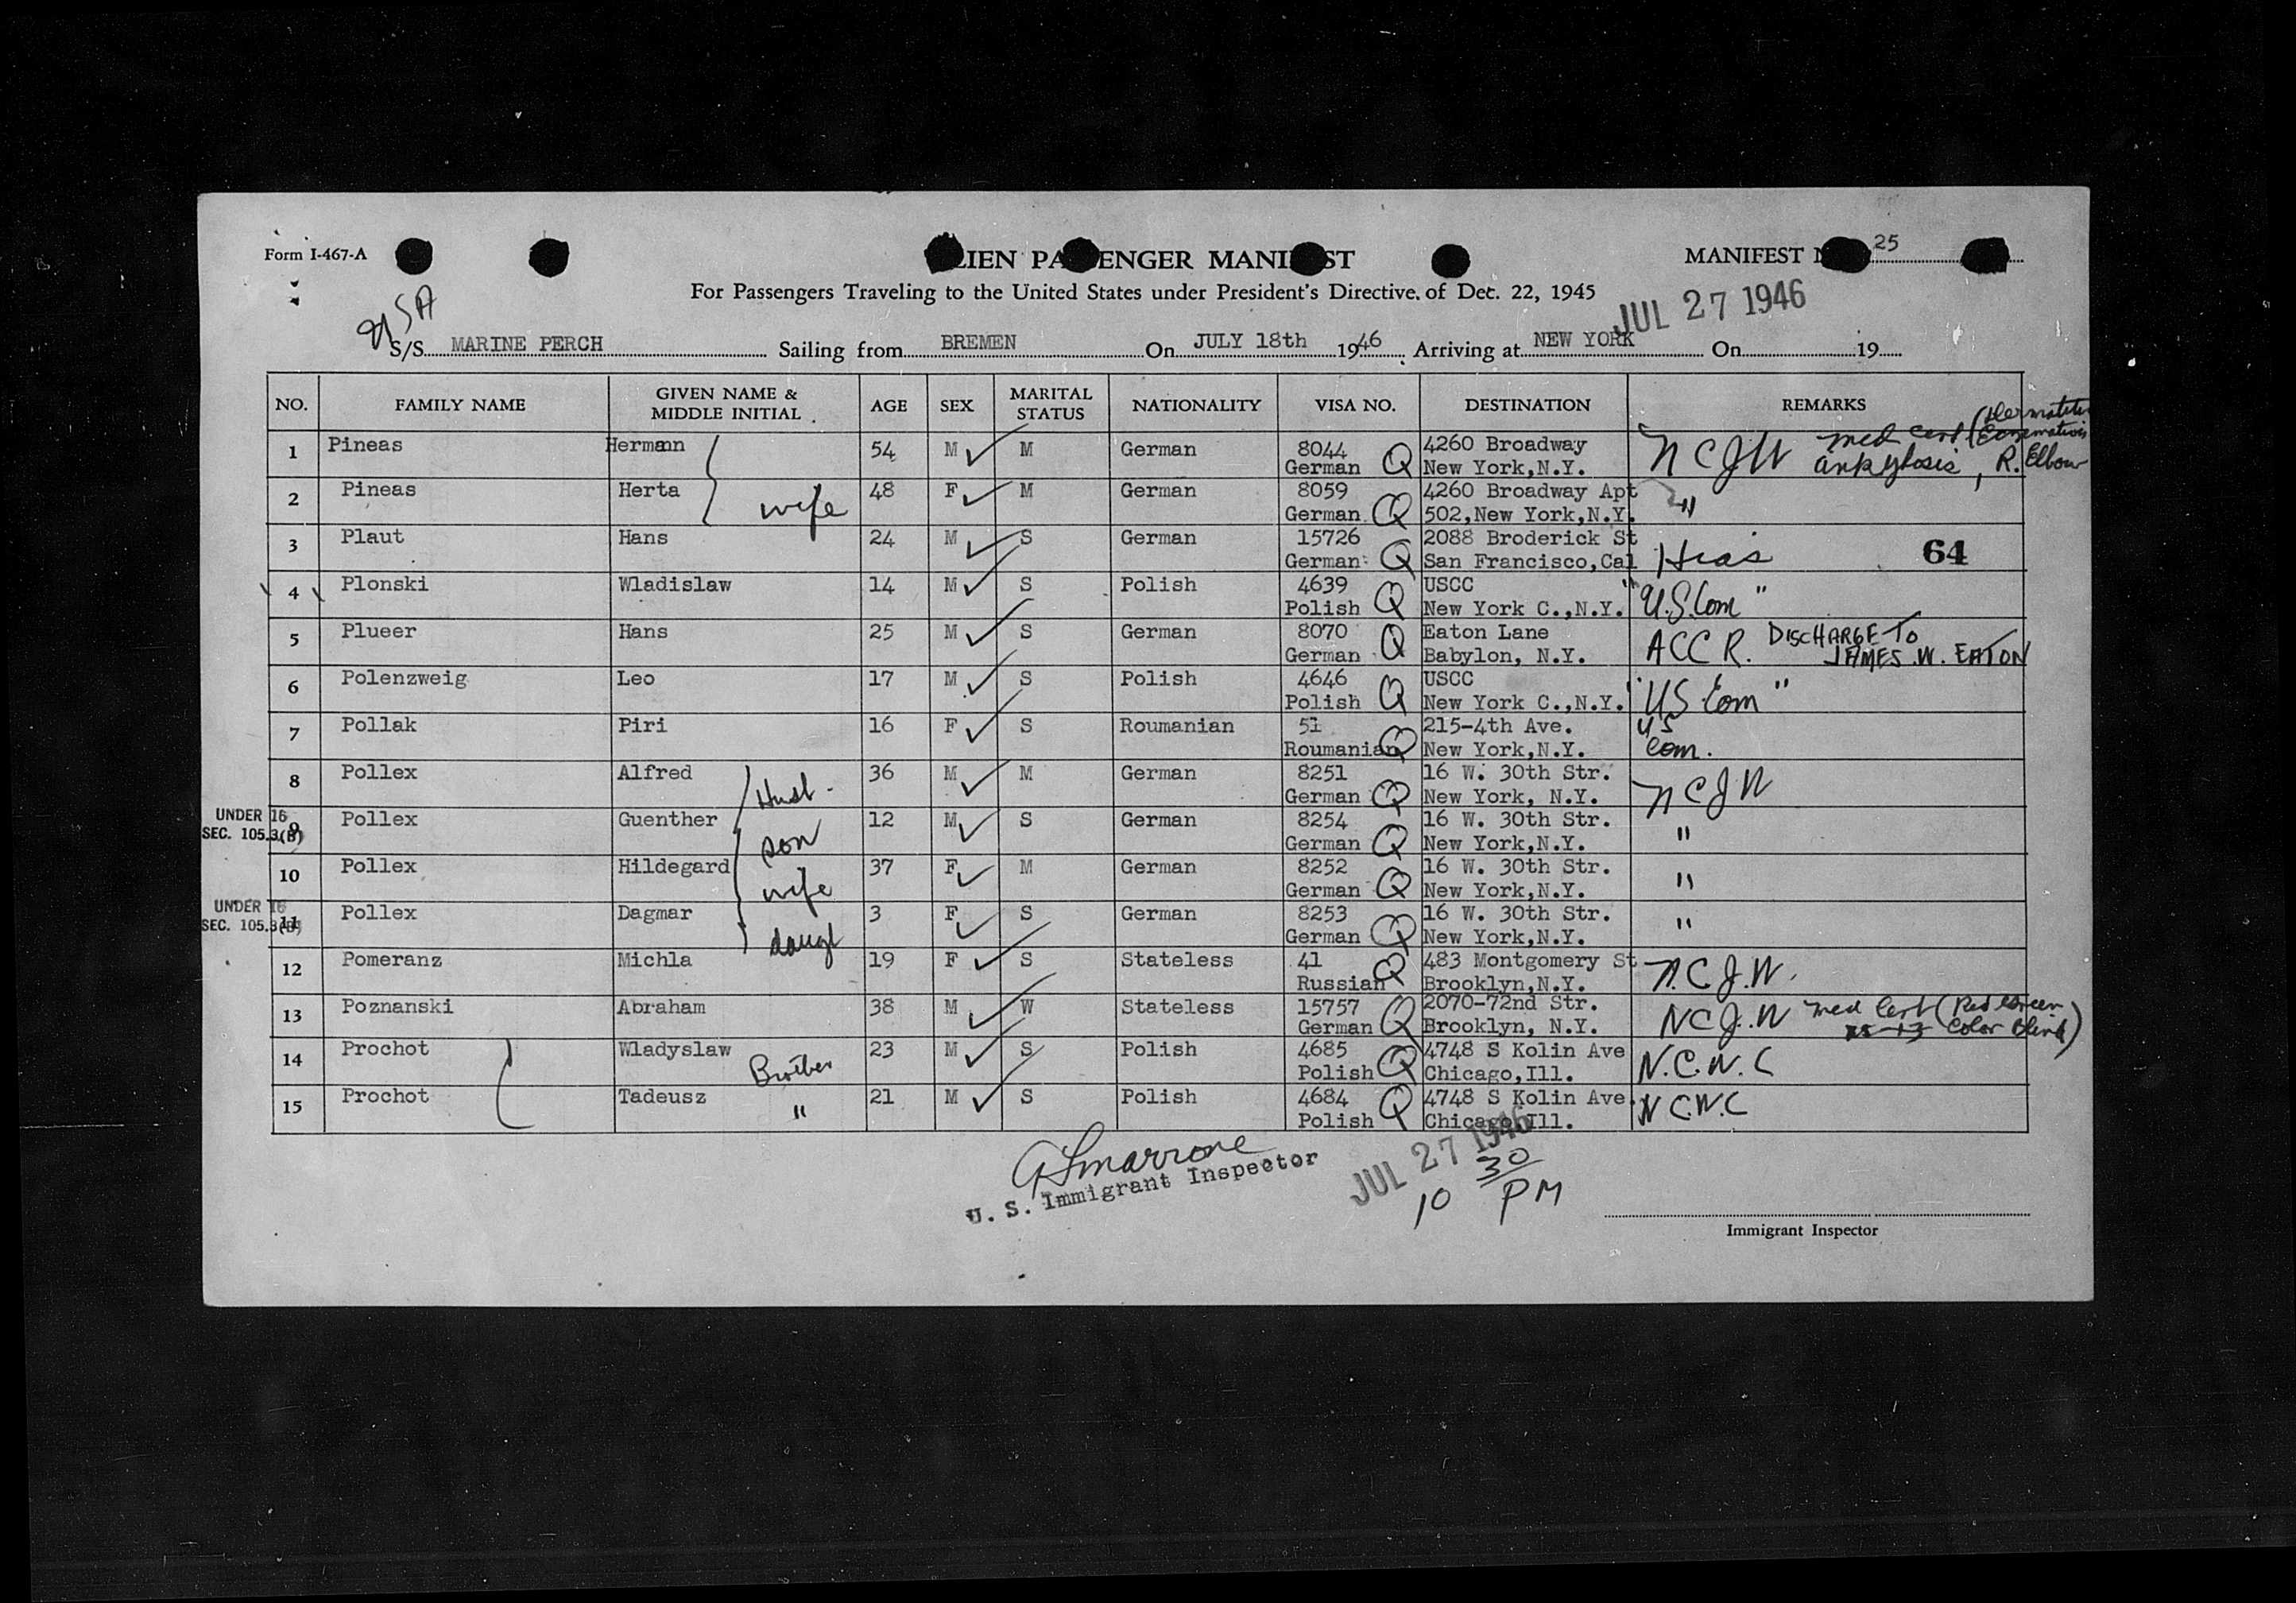 Form I-467-A
LIEN PA ENGER MANI ST
MANIFEST N 25
For Passengers Traveling to the United States under President's Directive of Dec. 22, 1945
JUL 27 1946
S/S MARINE PERCH Sailing from BREMEN On JULY 18th 1946 Arriving at NEW YORK On 19
NO. FAMILY NAME GIVEN NAME & MIDDLE INITIAL AGE SEX MARITAL STATUS NATIONALITY VISA NO. DESTINATION REMARKS
1 Pineas Hermann 54 M M German 8044 4260 Broadway NCJW med cert (Dermatitis
German Q New York,N.Y. ankylosis, R. Elbow
2 Pineas Herta wife 48 F M German 8059 4260 Broadway Apt "
German Q 502,New York,N.Y.
3 Plaut Hans 24 M S German 15726 2088 Broderick St Hias 64
German Q San Francisco,Cal
4 Plonski Wladislaw 14 M S Polish 4639 USCC "U.S. Com"
Polish Q New York C.,N.Y.
5 Plueer Hans 25 M S German 8070 Eaton Lane ACCR. DISCHARGE TO
German Q Babylon, N.Y. JAMES W. EATON
6 Polenzweig Leo 17 M S Polish 4646 USCC "US Com"
Polish Q New York C.,N.Y.
7 Pollak Piri 16 F S Roumanian 51 215-4th Ave. US
Roumanian Q New York,N.Y. Com.
8 Pollex Alfred Husb. 36 M M German 8251 16 W. 30th Str. NCJW
German Q New York, N.Y.
UNDER 16
SEC. 105.3(B)
9 Pollex Guenther son 12 M S German 8254 16 W. 30th Str. "
German Q New York,N.Y.
10 Pollex Hildegard wife 37 F M German 8252 16 W. 30th Str. "
German Q New York,N.Y.
UNDER 16
SEC. 105.3(B)
11 Pollex Dagmar daugt 3 F S German 8253 16 W. 30th Str. "
German Q New York,N.Y.
12 Pomeranz Michla 19 F S Stateless 41 483 Montgomery St N.C.J.W.
Russian Q Brooklyn,N.Y.
13 Poznanski Abraham 38 M W Stateless 15757 2070-72nd Str. NCJ.W med Cert (Red Green
German Q Brooklyn, N.Y. Color Blind)
14 Prochot Wladyslaw Brother 23 M S Polish 4685 4748 S Kolin Ave N.C.W.C
Polish Q Chicago,Ill.
15 Prochot Tadeusz " 21 M S Polish 4684 4748 S Kolin Ave. N C.W.C
Polish Q Chicago,Ill.
U. S. Immigrant Inspector
JUL 27 1946
10 30 PM
Immigrant Inspector